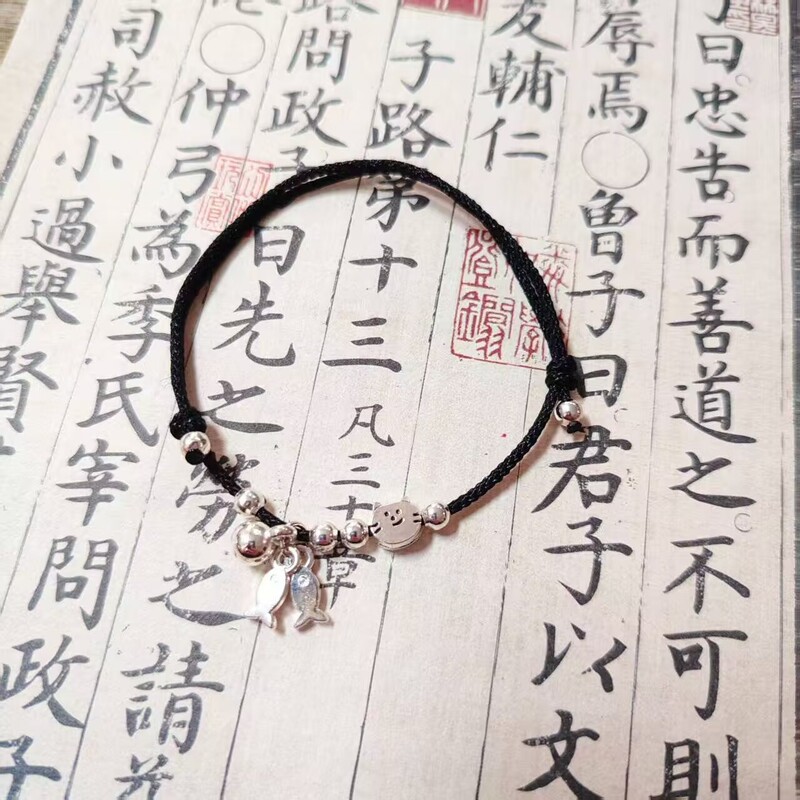 曰忠告而善道之不可則
辱焉○曾子曰君子以文
友輔仁
子路第十三 凡三十章
路問政子曰先之勞之請
○仲弓為季氏宰問政子
司赦小過舉賢